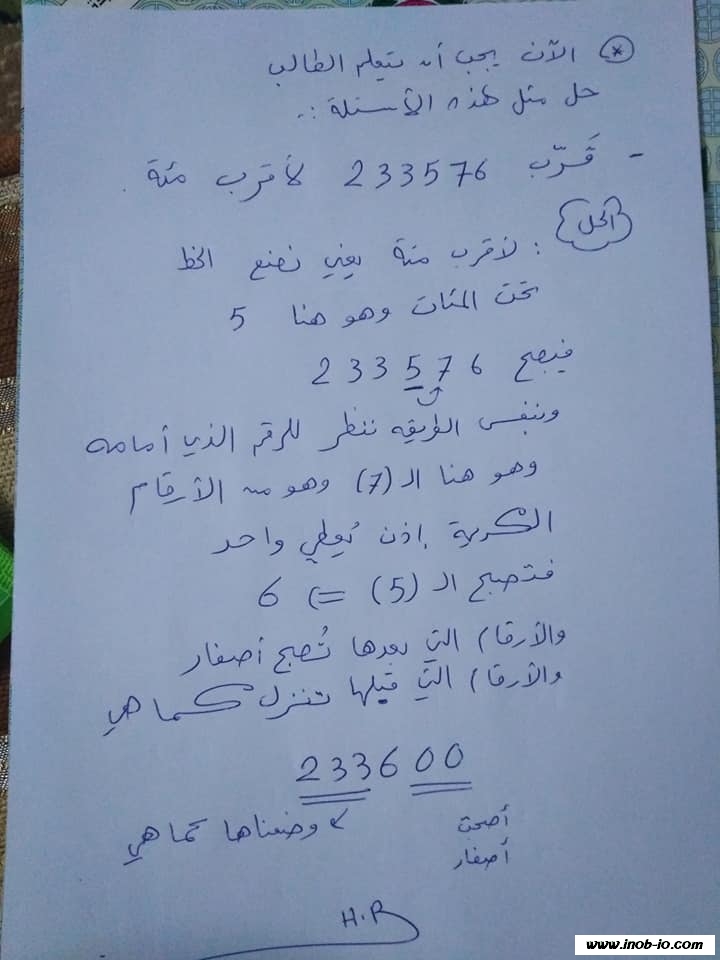 * الآن يجب أن يتعلم الطالب
حل مثل هذه الأسئلة :.
- قَرِّب 233576 لأقرب مئة .
الحل
: لأقرب مئة يعني نضع الخط
تحت المئات وهو هنا 5
فيصبح 233576
وبنفس الطريقه ننظر للرقم الذي أمامه
وهو هنا الـ (7) وهو من الأرقام
الكريمة إذن يُعطي واحد
فتصبح الـ (5) => 6
والأرقام التي بعدها تُصبح أصفار
والأرقام التي قبلها تنزل كما هي
233600
أصبحت أصفار
وضعناها كما هي
H.R
www.inob-io.com